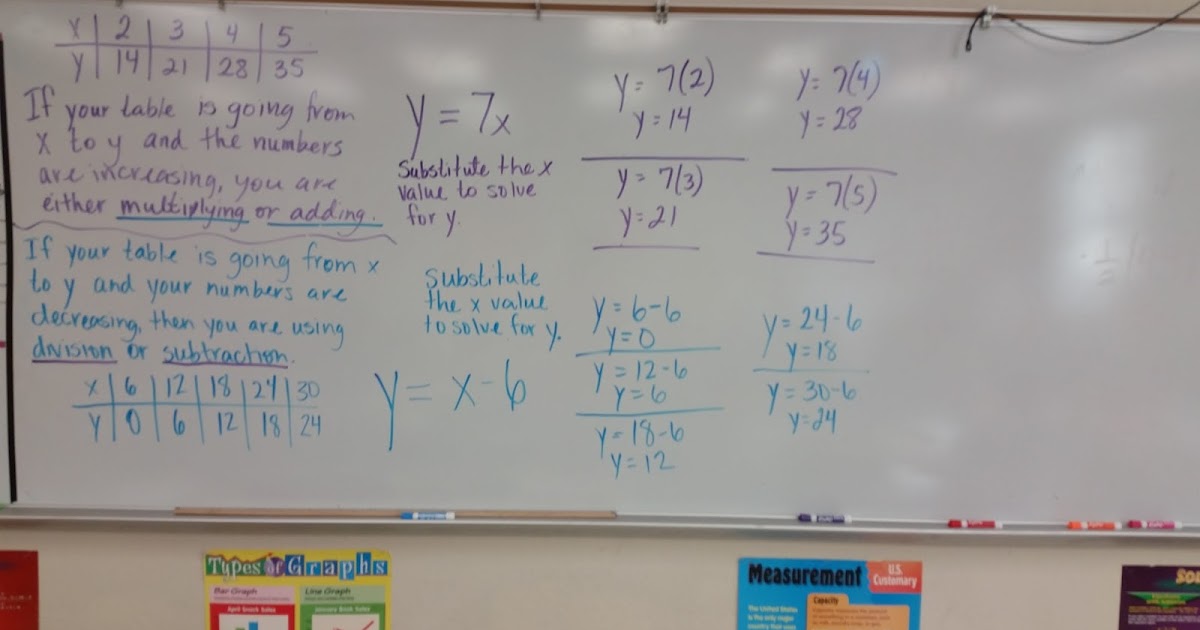 x | 2 | 3 | 4 | 5
y | 14 | 21 | 28 | 35
If your table is going from
x to y and the numbers
are increasing, you are
either multiplying or adding.
y = 7x
Substitute the x
value to solve
for y.
y = 7(2)
y = 14
y = 7(3)
y = 21
y = 7(4)
y = 28
y = 7(5)
y = 35
If your table is going from x
to y and your numbers are
decreasing, then you are using
division or subtraction.
x | 6 | 12 | 18 | 24 | 30
y | 0 | 6 | 12 | 18 | 24
Substitute
the x value
to solve for y.
y = x - 6
y = 6-6
y = 0
y = 12-6
y = 6
y = 18-6
y = 12
y = 24-6
y = 18
y = 30-6
y = 24
Types of Graphs
Bar Graph
Line Graph
April Snack Sales
January Book Sales
Measurement
U.S.
Customary
Capacity
The United States
is the only major
country that uses